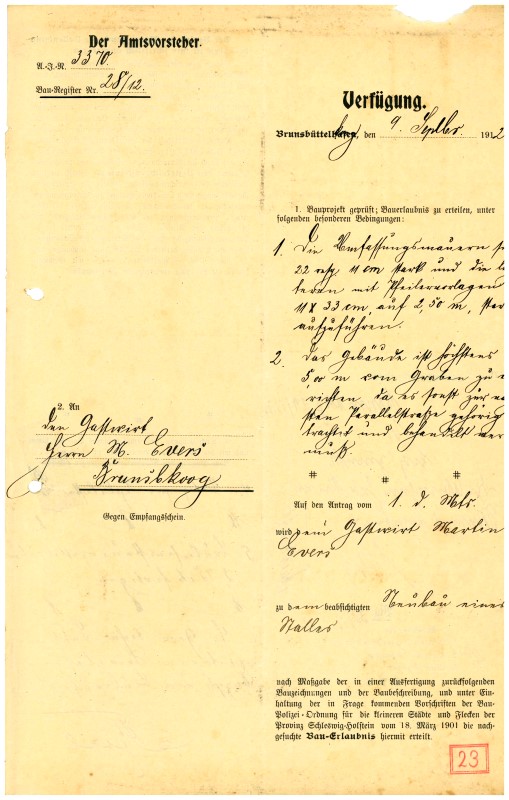 Der Amtsvorsteher.
A.-J.-N. 3370.
Bau-Register Nr. 28/12.
Verfügung.
Brunsbüttelkoog, den 9. Septbr. 1912
1. Bauprojekt geprüft; Bauerlaubnis zu erteilen, unter
folgenden besonderen Bedingungen:
1. Die Umfassungsmauern s
22 resp. 11 cm stark und die le
teren mit Pfeilervorlagen
11 X 33 cm, auf 2,50 m, star
aufzuführen.
2. Das Gebäude ist höchstens
5,00 m vom Graben zu e
richten, da es sonst zur
sten Parallelstraße gehörig
trachtet und behandelt wer
muß.
2. An
den Gastwirt
Herrn M. Evers
Brunsbkoog
Gegen Empfangsschein.
# # #
Auf den Antrag vom 1. d. Mts.
wird dem Gastwirt Martin
Evers
zu dem beabsichtigten Neubau eines
Stalles
nach Maßgabe der in einer Ausfertigung zurückfolgenden
Bauzeichnungen und der Baubeschreibung, und unter Ein-
haltung der in Frage kommenden Vorschriften der Bau-
Polizei-Ordnung für die kleineren Städte und Flecken der
Provinz Schleswig-Holstein vom 18. März 1901 die nach-
gesuchte Bau-Erlaubnis hiermit erteilt.
23